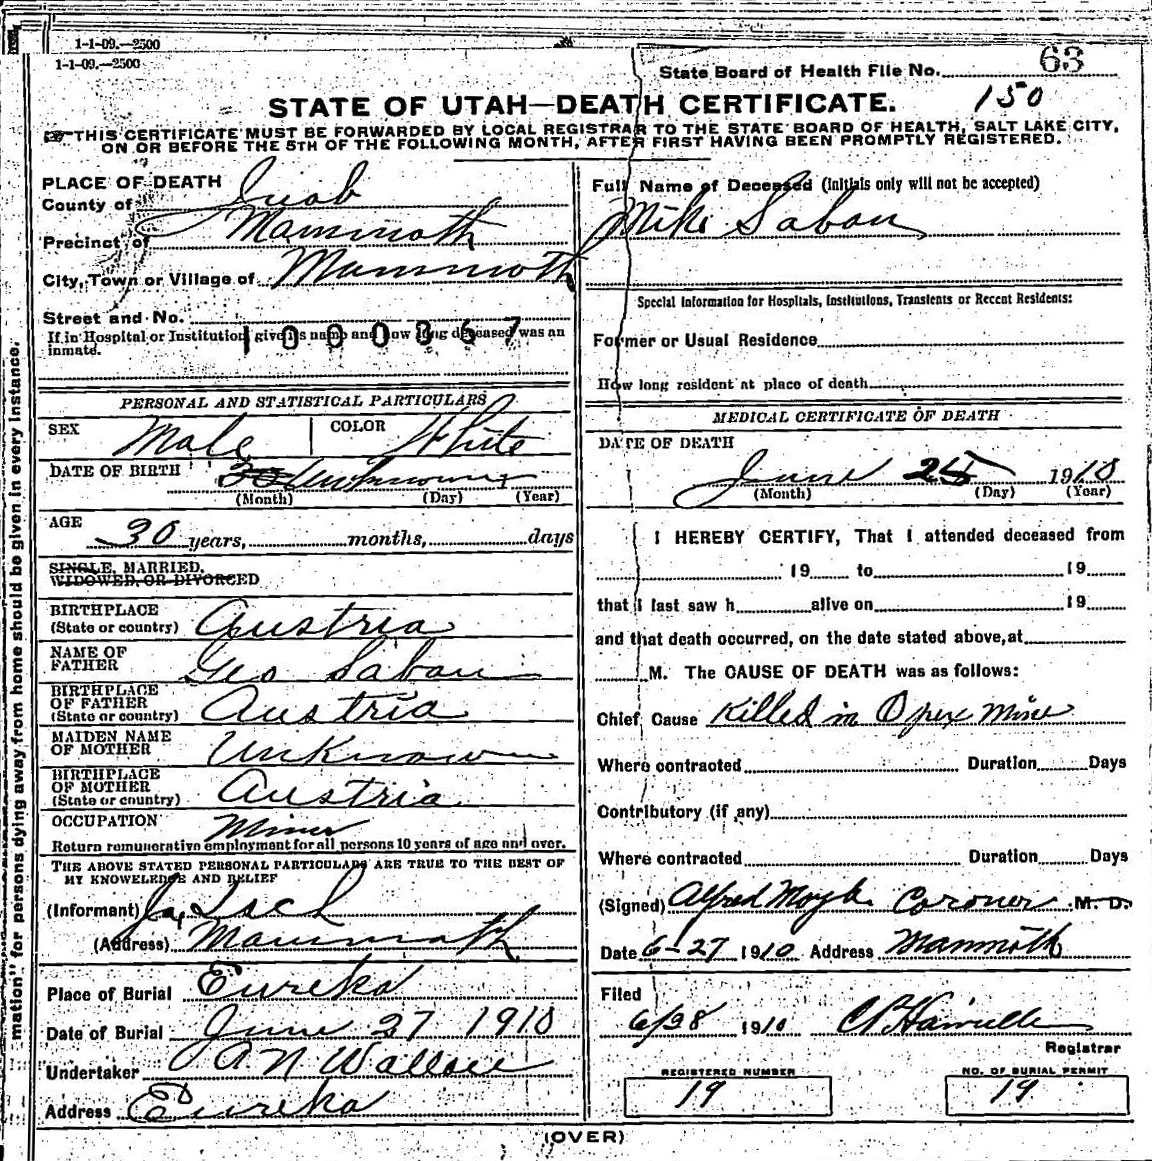 1-1-09.—2500
1-1-09.—2500
State Board of Health File No. 63
150
STATE OF UTAH—DEATH CERTIFICATE.
THIS CERTIFICATE MUST BE FORWARDED BY LOCAL REGISTRAR TO THE STATE BOARD OF HEALTH, SALT LAKE CITY,
ON OR BEFORE THE 5TH OF THE FOLLOWING MONTH, AFTER FIRST HAVING BEEN PROMPTLY REGISTERED.
mation" for persons dying away from home should be given in every instance.
PLACE OF DEATH
County of Juab
Precinct of Mammoth
City, Town or Village of Mammoth
Street and No.
If in Hospital or Institution, give its name and how long deceased was an
inmate.
1000367
PERSONAL AND STATISTICAL PARTICULARS
SEX Male COLOR White
DATE OF BIRTH 30 Unknown
(Month) (Day) (Year)
AGE
30 years, months, days
SINGLE, MARRIED,
WIDOWED, OR DIVORCED
BIRTHPLACE
(State or country) Austria
NAME OF
FATHER Geo Saban
BIRTHPLACE
OF FATHER
(State or country) Austria
MAIDEN NAME
OF MOTHER Unknown
BIRTHPLACE
OF MOTHER
(State or country) Austria
OCCUPATION Miner
Return remunerative employment for all persons 10 years of age and over.
THE ABOVE STATED PERSONAL PARTICULARS ARE TRUE TO THE BEST OF
MY KNOWELEDGE AND BELIEF
(Informant)
(Address) Mammoth
Place of Burial Eureka
Date of Burial June 27 1910
Undertaker A N Wallace
Address Eureka
Full Name of Deceased (initials only will not be accepted)
Mike Saban
Special Information for Hospitals, Institutions, Transients or Recent Residents:
Former or Usual Residence
How long resident at place of death
MEDICAL CERTIFICATE OF DEATH
DATE OF DEATH
June 25 1910
(Month) (Day) (Year)
I HEREBY CERTIFY, That I attended deceased from
19 to 19
that I last saw h alive on 19
and that death occurred, on the date stated above, at
M. The CAUSE OF DEATH was as follows:
Chief Cause Killed in Opex Mine
Where contracted Duration Days
Contributory (if any)
Where contracted Duration Days
(Signed) Alfred Moyle Coroner M. D.
Date 6-27 1910 Address Mammoth
Filed
6/28 1910
Registrar
REGISTERED NUMBER
19
NO. OF BURIAL PERMIT
19
(OVER)